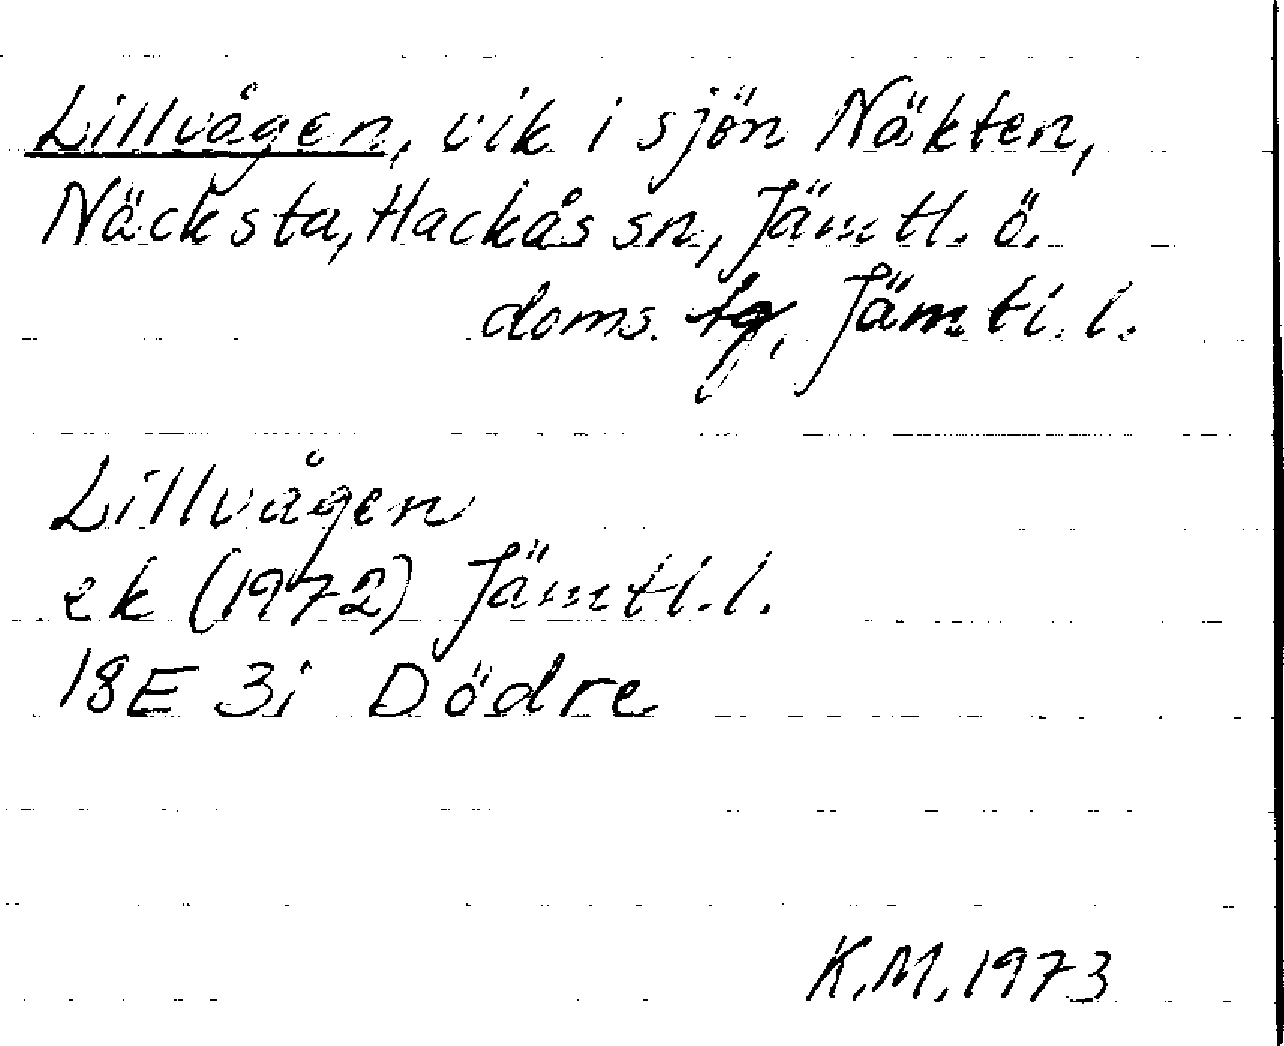 Lillvågen, vik i sjön Näkten,
Näcksta, Hackås sn, Jämtl. ö.
doms. tg, Jämtl. l.
Lillvågen
ek (1972) Jämtl. l.
18E 3i Dödre
K.M. 1973